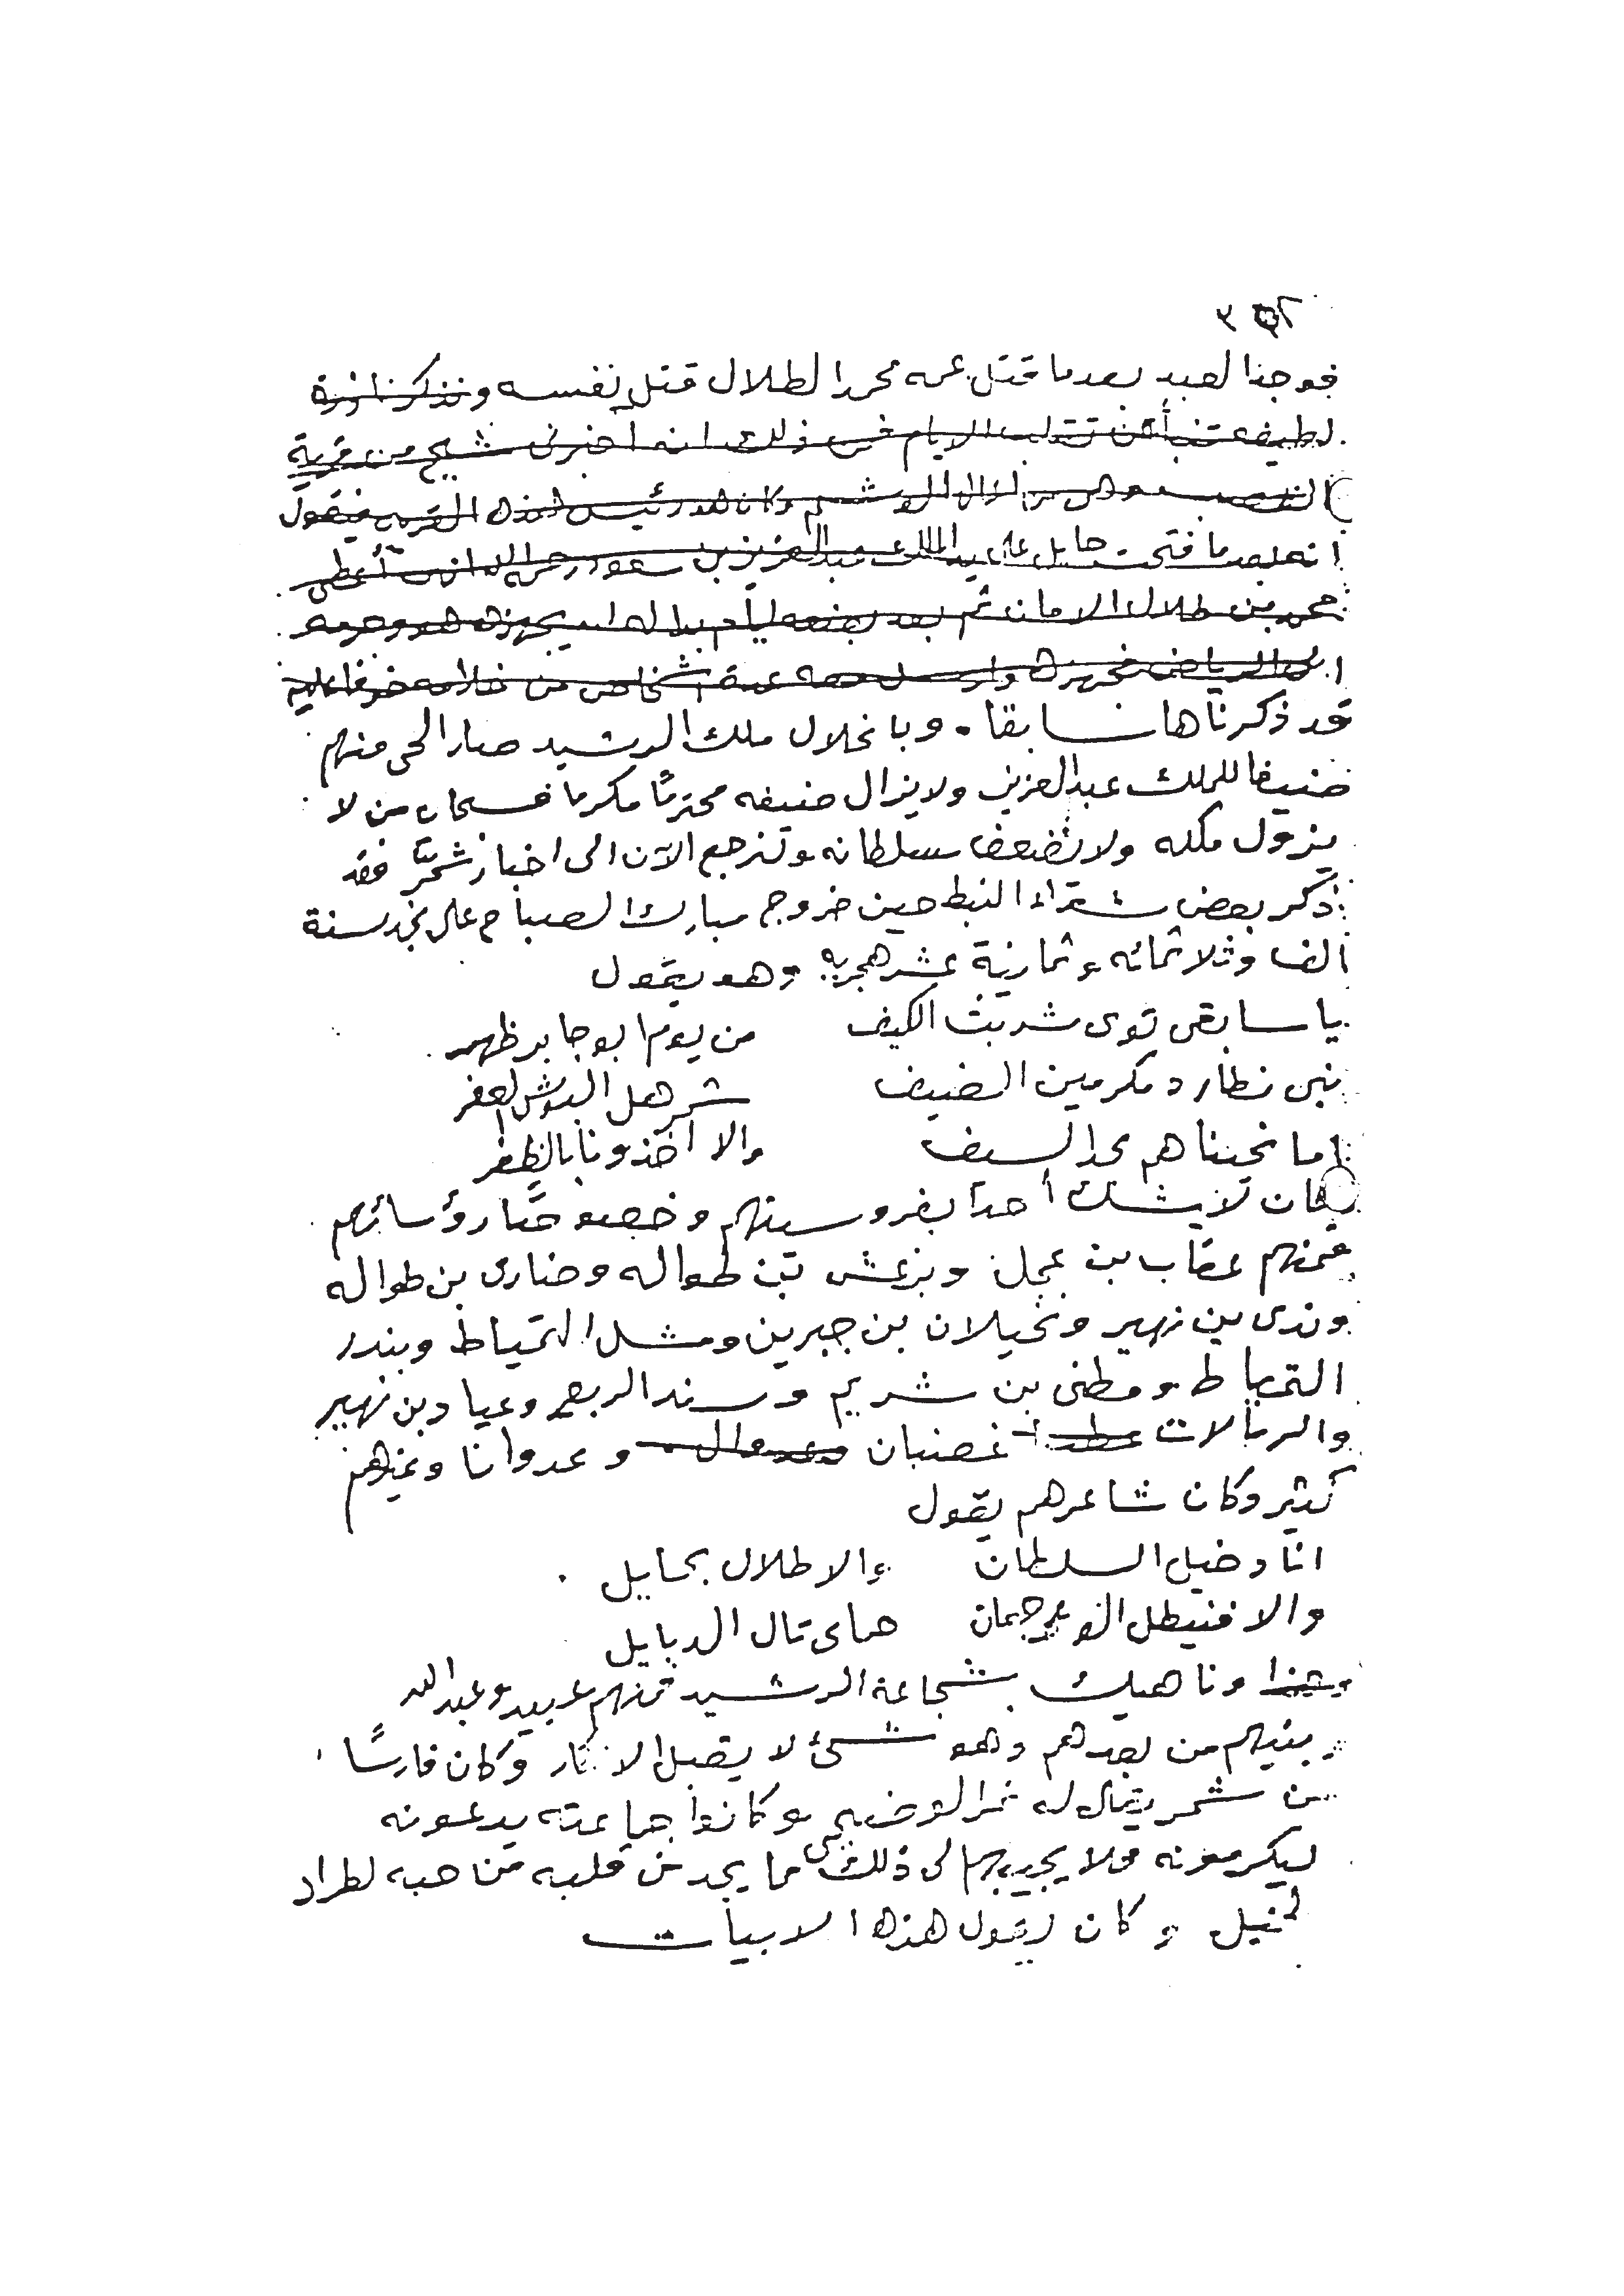 فوجدنا العبد بعدما قتل عمه محمد الطلال قتل نفسه ونذكر نادرة
لطيفة تنبأ عن تقلب الايام فمن ذلك انه اخبرني شيخ من قرية
القصب وهي من الوشم وكان هو رئيس لهذه القرية فيقول
انه بعد ما فتحت حايل على يد الملك عبدالعزيز بن سعود رحمه الله انه أعطى
محمد بن طلال الامان ثم بعد بضعة ايام بدا له ان يجهزه هو وحرمه
الى الرياض فجهزه وارسل معه عدة اشخاص من خدامه خوفا عليه
قد ذكرناها سابقا . وبانحلال ملك الرشيد صار الحي منهم
ضيفا للملك عبدالعزيز ولا يزال ضيفه محترمًا مكرما فسبحان من لا
يزول ملكه ولا تضعف سلطانه ونرجع الآن الى اخبار شمّر فقد
ذكر بعض شعراء النبط حين خروج مبارك الصباح على نجد سنة
الف وثلاثمائه وثمانية عشر هجريه وهو يقول
يا سابقي توى شربت الكيف من يوم ابو جابر ظهر
نبي نطارد مكرمين الضيف شمر هل البوش العفر
اما نحيناهم بحد السيف والا اخذونا بالظفر
وكان لا يشك أحدا بفروسيتهم وخصوصًا رؤسائهم
فمنهم عقاب بن عجل وبرغش بن طواله وضاري بن طواله
وندى بن نهير ونحيلان بن جبرين ومشل التمياط وبندر
التمياط ومطني بن شريم وسند الربع وعياد بن نهير
والرمالات غضبان وعدوانا وغيرهم
كثير وكان شاعرهم يقول
انا دخيل السلطان والا طلال بحايل
والا فنيطل ابو جمعان حماى تال الدبايل
وهذا وناهيك بشجاعة الرشيد فمنهم عبيد وعبدالله
وبنيهم من بعدهم وهو شيئ لا يقبل الانكار وكان فارسًا
من شمر يقال له نمر الوضيحي وكانوا جماعته يدعونه
ليكرمونه فلا يجيبهم الى ذلك مما يجد في قلبه من حبه لطراد
الخيل وكان يقول هذه الابيات